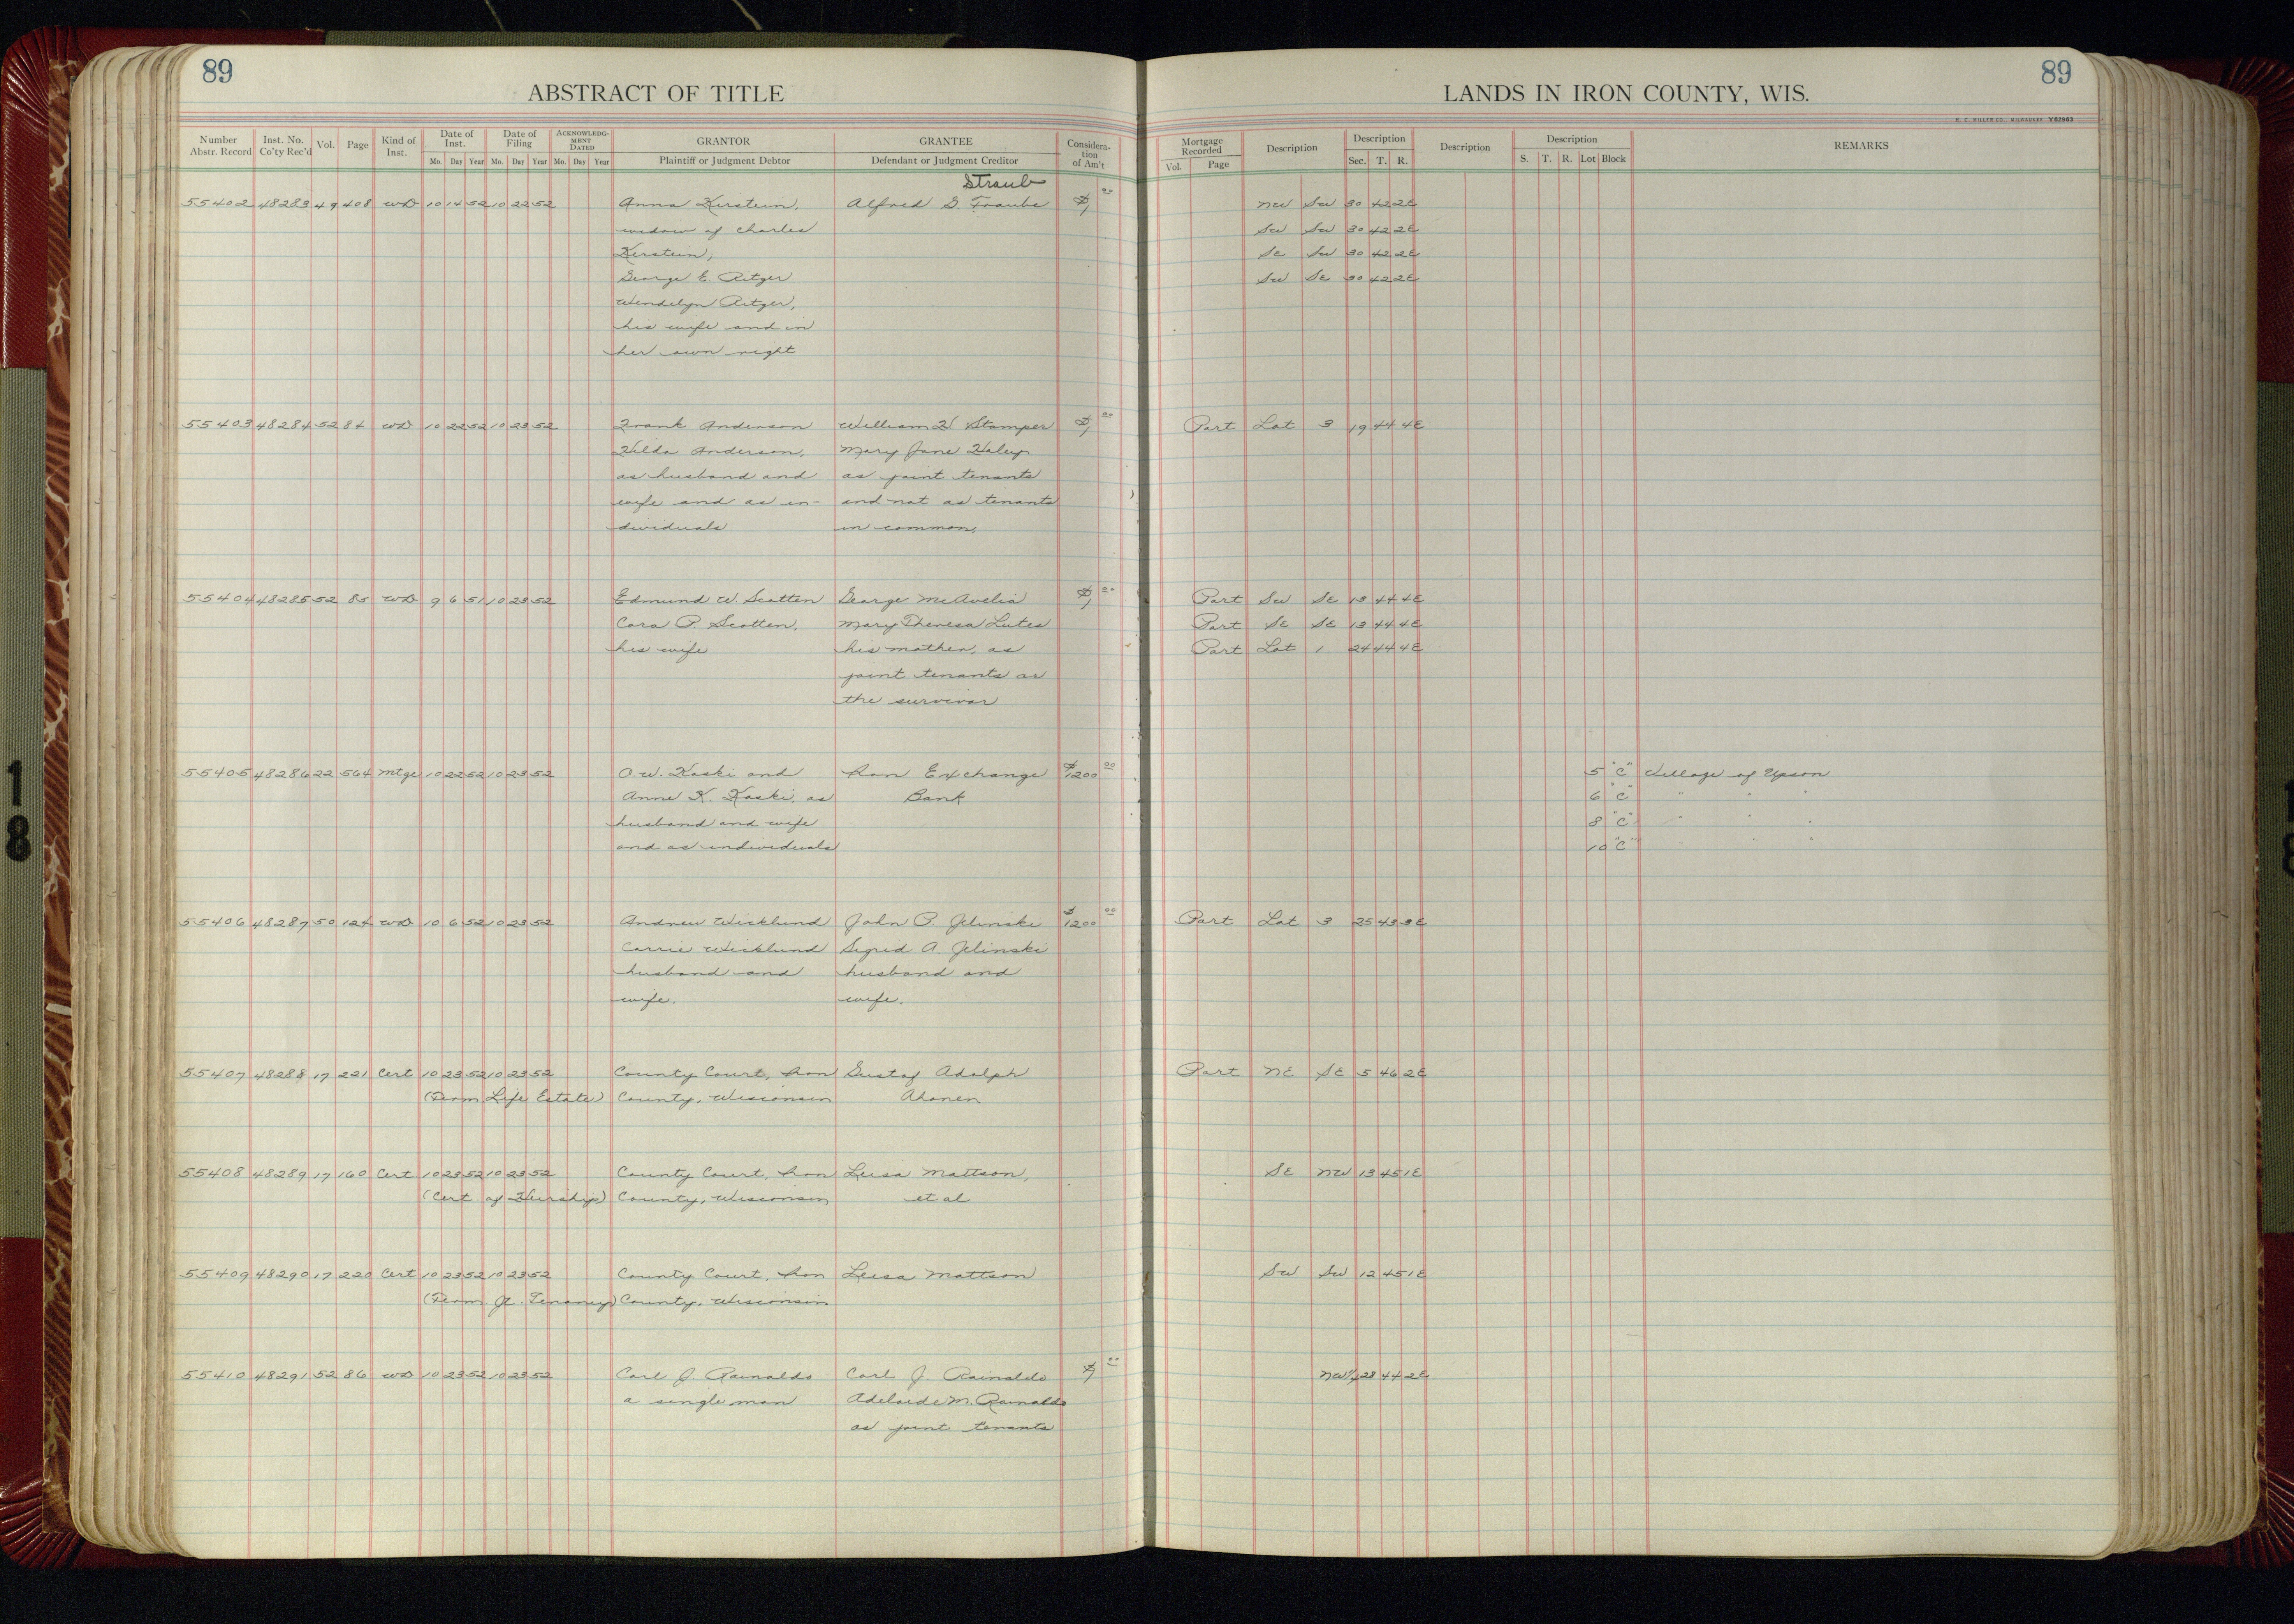 89
ABSTRACT OF TITLE
Number Abstr. Record Inst. No. Co'ty Rec'd Vol. Page Kind of Inst. Date of Inst. Mo. Day Year Date of Filing Mo. Day Year ACKNOWLEDGMENT DATED Mo. Day Year GRANTOR Plaintiff or Judgment Debtor GRANTEE Defendant or Judgment Creditor Consideration of Am't
Straub
55402 48283 49 408 WD 10 14 52 10 22 52 Anna Kerstein, Alfred G. Traube $1 00
widow of Charles
Kerstein,
George E Ritger
Wendelyn Ritger,
his wife and in
her own right
55403 48284 52 84 WD 10 22 52 10 23 52 Frank Anderson William H Stamper $1 00
Hilda Anderson, Mary Jane Haley
as husband and as joint tenants
wife and as in- and not as tenants
dividuals in common.
55404 48285 52 85 WD 9 6 51 10 23 52 Edmund W. Scotten George McAvelia $1 00
Cora P. Scotten, Mary Theresa Lutes
his wife his mother, as
joint tenants or
the survivor
55405 48286 22 564 Mtge 10 22 52 10 23 52 O.W. Koski and Iron Exchange $1200 00
Anne K. Koski, as Bank
husband and wife
and as individuals
55406 48287 50 124 WD 10 6 52 10 23 52 Andrew Wicklund John P. Jelinski $1200 00
Carrie Wicklund Sigrid A. Jelinski
husband and husband and
wife. wife.
55407 48288 17 221 Cert 10 23 52 10 23 52 County Court, Iron Gustaf Adolph
(Term Life Estate) County, Wisconsin Ahonen
55408 48289 17 160 Cert 10 23 52 10 23 52 County Court, Iron Leisa Mattson,
(Cert. of Heirship) County, Wisconsin et al
55409 48290 17 220 Cert 10 23 52 10 23 52 County Court, Iron Leisa Mattson
(Term. Jt. Tenancy) County, Wisconsin
55410 48291 52 86 WD 10 23 52 10 23 52 Carl J. Rainaldo Carl J. Rainaldo $1 00
a single man Adelaide M. Rainaldo
as joint tenants
89
LANDS IN IRON COUNTY, WIS.
H. C. MILLER CO., MILWAUKEE Y82963
Mortgage Recorded Vol. Page Description Description Sec. T. R. Description Description S. T. R. Lot Block REMARKS
NW SW 30 42 2E
SW SW 30 42 2E
SE SW 30 42 2E
SW SE 30 42 2E
Part Lot 3 19 44 4E
Part SW SE 13 44 4E
Part SE SE 13 44 4E
Part Lot 1 24 44 4E
5 "C" Village of Upson
6 "C" " " "
8 "C" " " "
10 "C" " " "
Part Lot 3 25 43 3E
Part NE SE 5 46 2E
SE NW 13 45 1E
SW SW 12 45 1E
NW1/4 28 44 2E
18